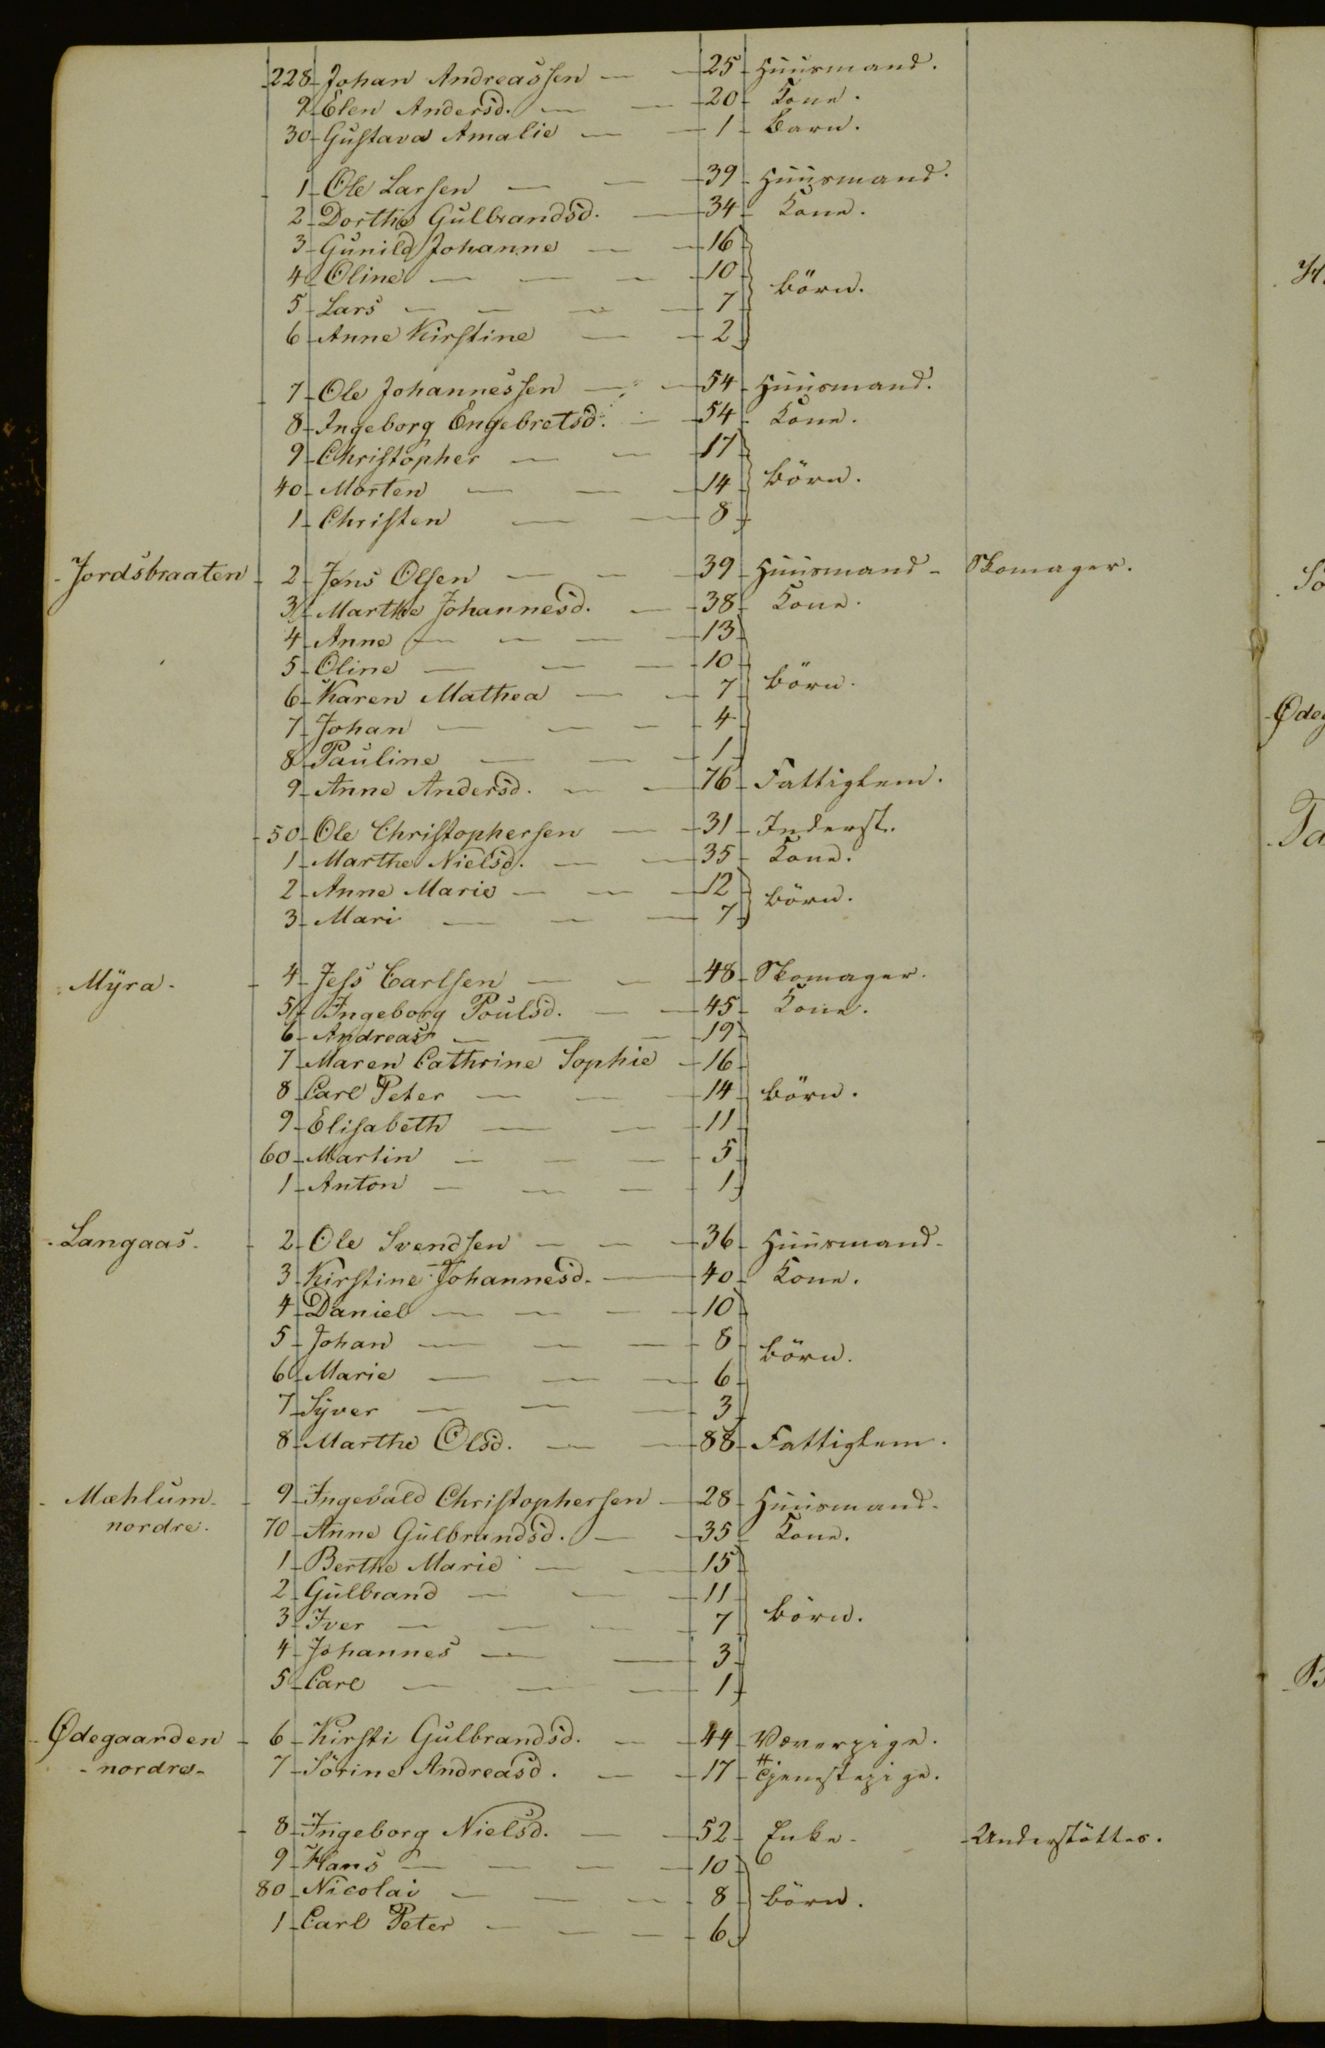 228 Johan Andreassen — — 25 Huusmand.
9 Elen Andersd. — — 20 Kone.
30 Gustava Amalie — — 1 Barn.
1 Ole Larsen — — 39 Huusmand.
2 Dorthe Gulbrandsd. — 34 Kone.
3 Gunild Johanne — — 16
4 Oline — — — 10
Börn.
5 Lars — — — — 7
6 Anne Kirstine — — 2
7 Ole Johannessen — — 54 Huusmand.
8 Ingeborg Engebretsd. — 54 Kone.
9 Christopher — — 17
40 Morten — — — 14 Börn.
1 Christen — — 8
Jordsbraaten 2 Jens Olsen — — — 39 Huusmand - Skomager.
3 Marthe Johannesd. — 38 Kone.
4 Anne — — — — 13
5 Oline — — — 10
6 Karen Mathea — — 7 Börn.
7 Johan — — — 4
8 Pauline — — — 1
9 Anne Andersd. — — 76 Fattiglem.
50 Ole Christophersen — 31 Inderst.
1 Marthe Nielsd. — — 35 Kone.
2 Anne Marie — — — 12
Börn.
3 Mari — — — 7
Mÿra. 4 Jess Carlsen — — 48 Skomager.
5 Ingeborg Poulsd. — — 45 Kone.
6 Andreas — — — 19
7 Maren Cathrine Sophie 16
8 Carl Peter — — — 14 Börn.
9 Elisabeth — — 11
60 Martin — — — 5
1 Anton — — — 1
Langaas. 2 Ole Svendsen — — — 36 Huusmand.
3 Kirstine Johannesd. — 40 Kone.
4 Daniel — — — — 10
5 Johan — — — 8
Börn.
6 Marie — — — 6
7 Syver — — — 3
8 Marthe Olsd. — — 88 Fattiglem.
Mæhlum 9 Ingebald Christophersen 28 Huusmand.
nordre. 70 Anne Gulbrandsd. — — 35 Kone.
1 Berthe Marie — — 15
2 Gulbrand — — — 11
3 Iver — — — 7 Börn.
4 Johannes — — 3
5 Carl — — — 1
Ødegaarden 6 Kirsti Gulbrandsd. — — 44 Væverpige.
nordre 7 Sörine Andreasd. — — 17 Tjenestepige.
8 Ingeborg Nielsd. — — 52 Enke - Understöttes.
9 Hans — — — — 10
80 Nicolai — — — 8 Börn.
1 Carl Peter — — — 6